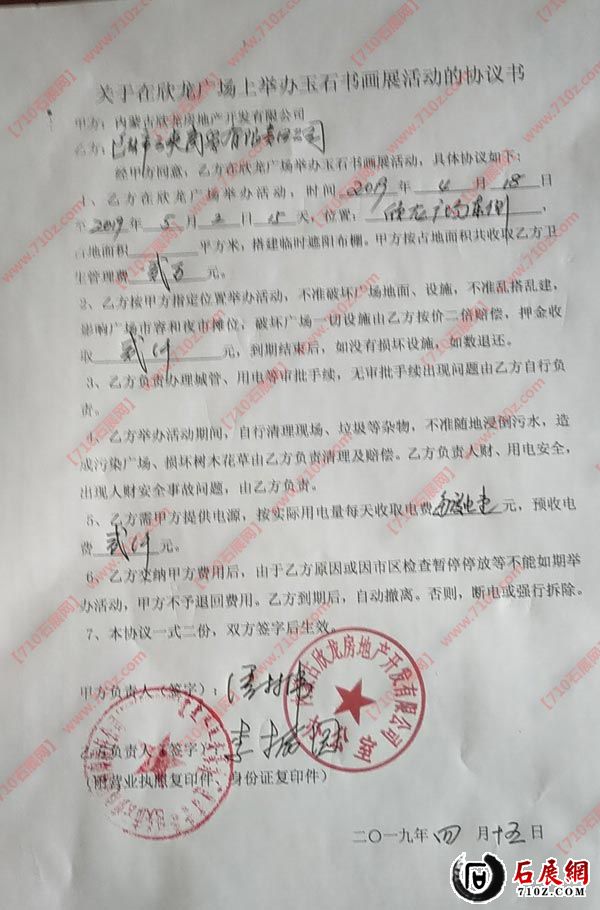 关于在欣龙广场上举办玉石书画展活动的协议书
甲方：内蒙古欣龙房地产开发有限公司
乙方：商贸有限责任公司
经甲方同意，乙方在欣龙广场举办玉石书画展活动，具体协议如下：
1、乙方在欣龙广场举办活动，时间 2019 年 4 月 18 日
至 2019 年 5 月 2 日 15 天，位置：欣龙广场东侧，
占地面积 平方米，搭建临时遮阳布棚。甲方按占地面积共收取乙方卫
生管理费 贰万 元。
2、乙方按甲方指定位置举办活动，不准破坏广场地面、设施，不准乱搭乱建，
影响广场市容和夜市摊位，破坏广场一切设施由乙方按价二倍赔偿，押金收
取 贰仟 元，到期结束后，如没有损坏设施，如数退还。
3、乙方负责办理城管、用电等审批手续，无审批手续出现问题由乙方自行负
责。
4、乙方举办活动期间，自行清理现场、垃圾等杂物，不准随地浸倒污水，造
成污染广场、损坏树木花草由乙方负责清理及赔偿。乙方负责人财、用电安全，
出现人财安全事故问题，由乙方负责。
5、乙方需甲方提供电源，按实际用电量每天收取电费 元，预收电
费 贰仟 元。
6、乙方交纳甲方费用后，由于乙方原因或因市区检查暂停停放等不能如期举
办活动，甲方不予退回费用。乙方到期后，自动撤离。否则，断电或强行拆除。
7、本协议一式二份，双方签字后生效。
甲方负责人（签字）：
内蒙古欣龙房地产开发有限公司
办公室
乙方负责人（签字）
（附营业执照复印件、身份证复印件）
二〇一九年 四 月 十五 日
【710石展网】
www.710z.com
石展網
710Z.COM